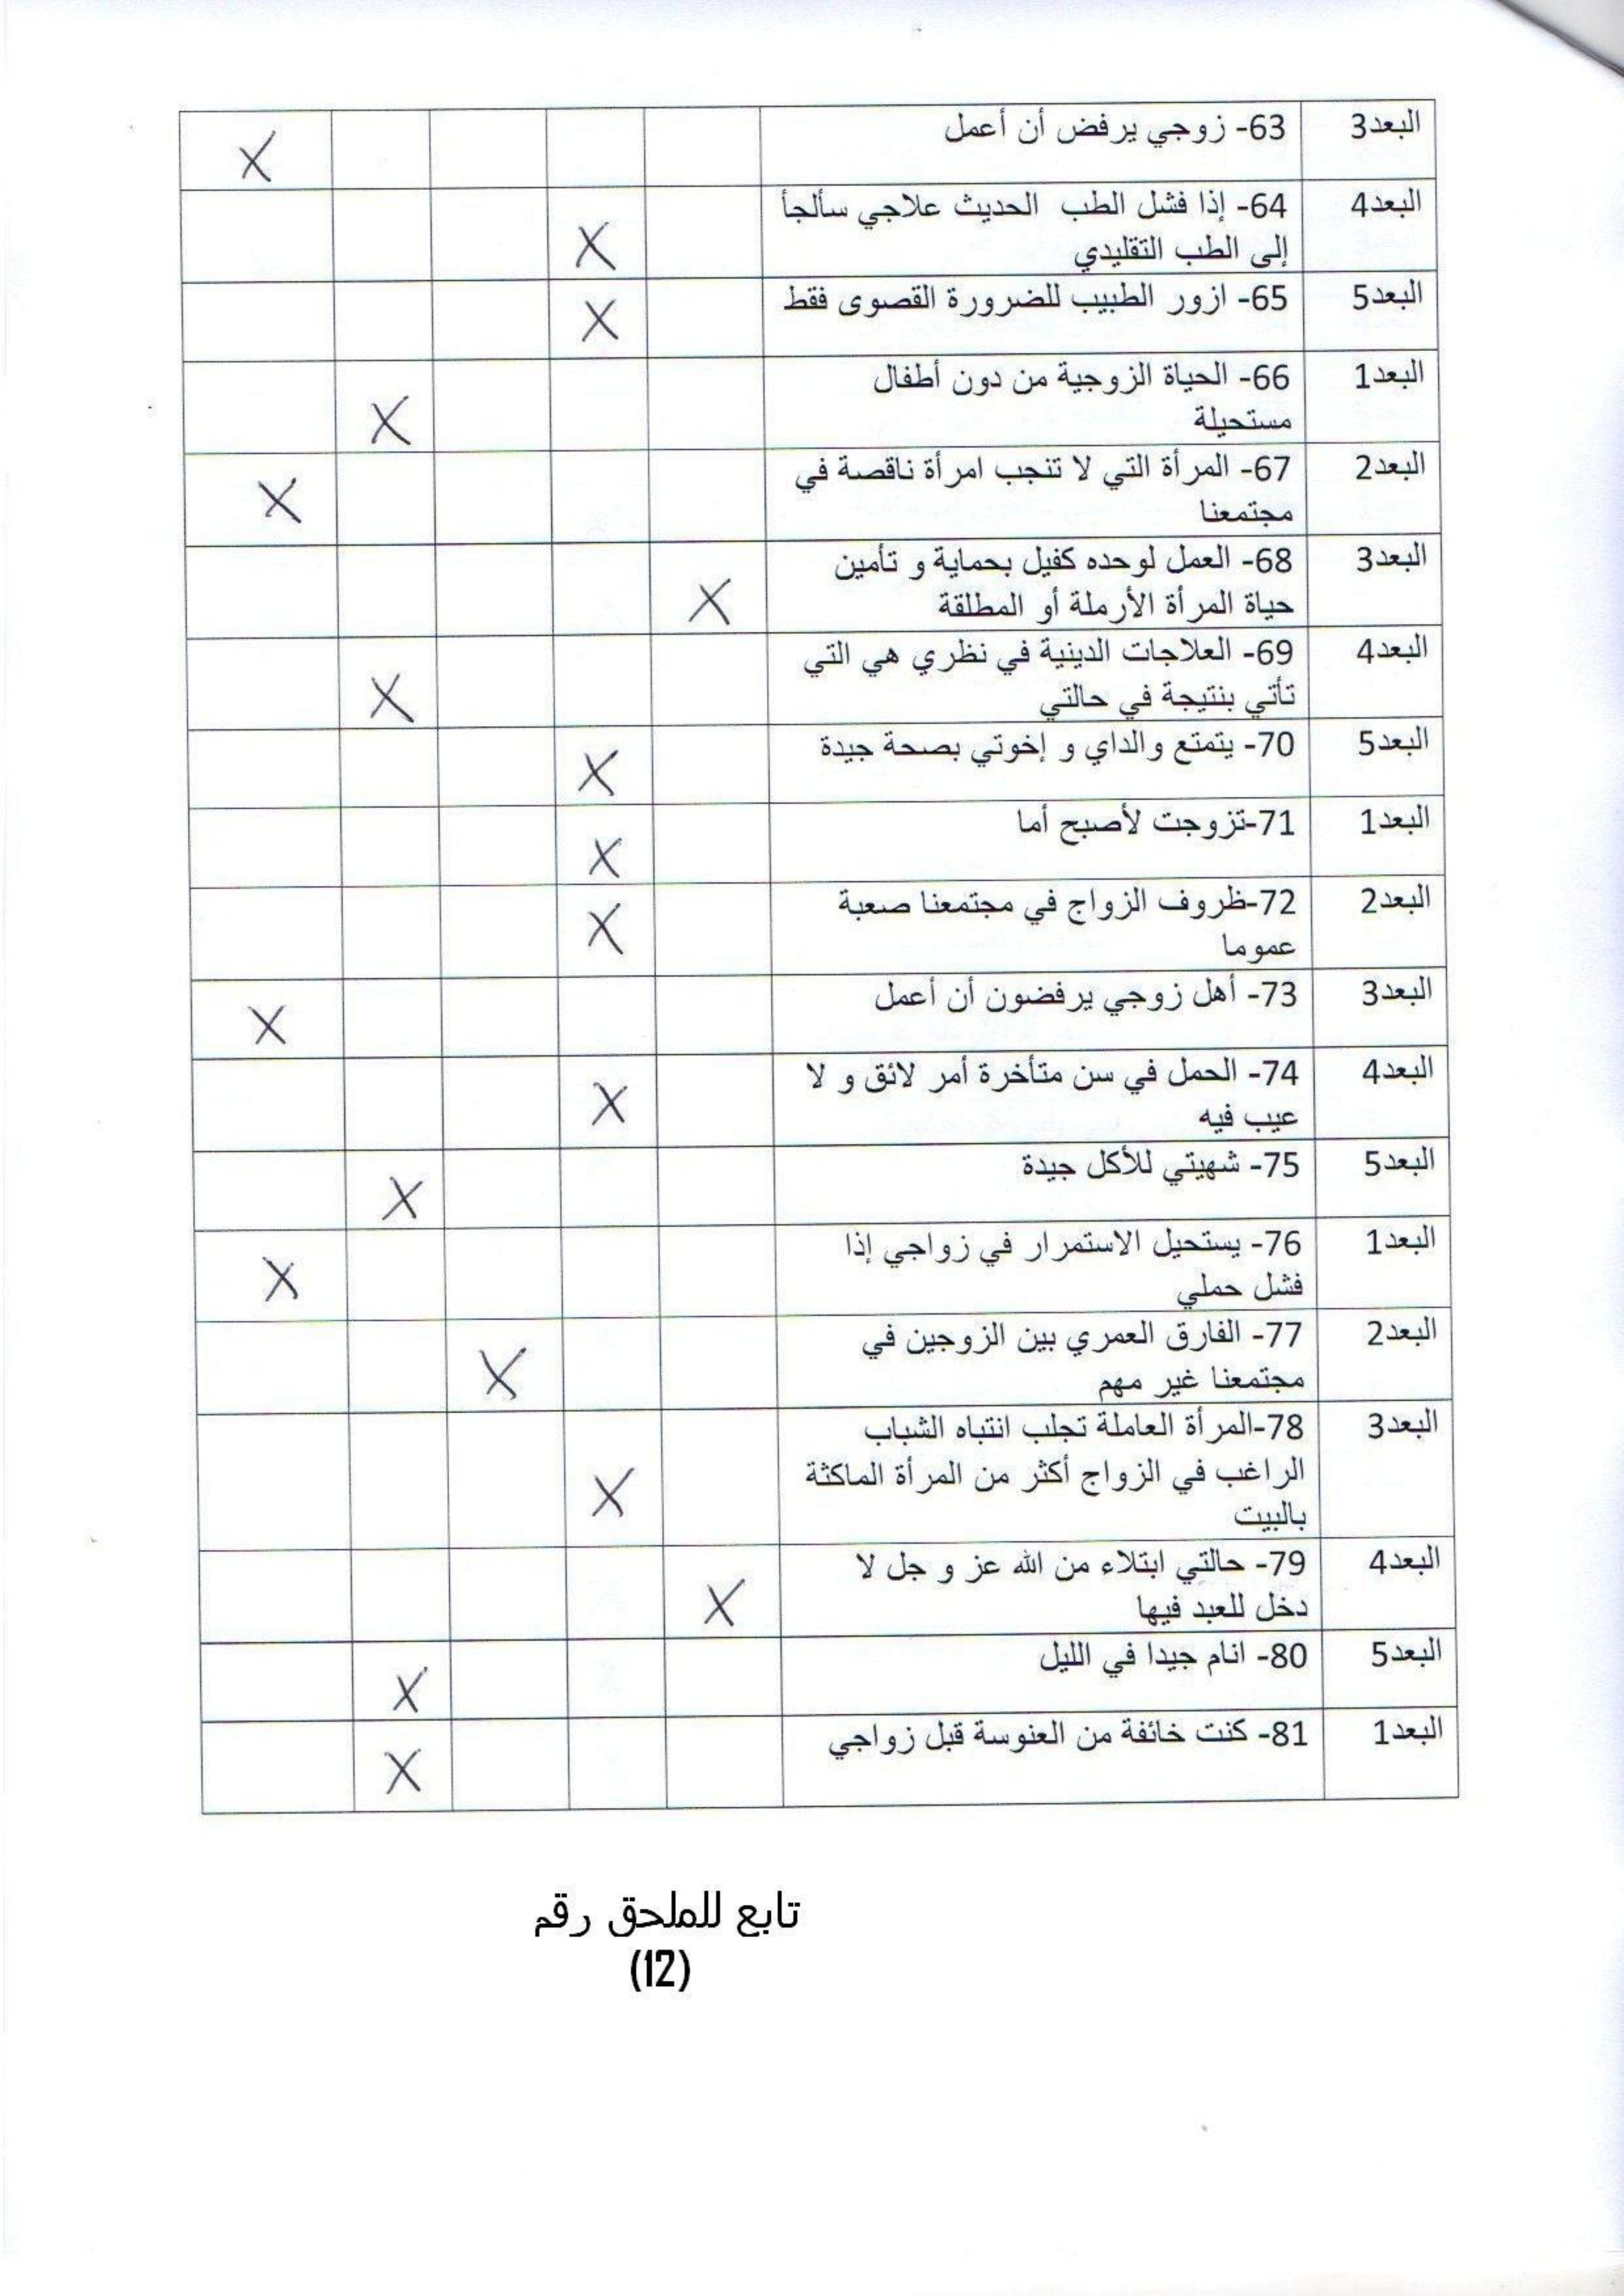 البعد3 63- زوجي يرفض أن أعمل X
البعد4 64- إذا فشل الطب الحديث علاجي سألجأ
إلى الطب التقليدي X
البعد5 65- ازور الطبيب للضرورة القصوى فقط X
البعد1 66- الحياة الزوجية من دون أطفال
مستحيلة X
البعد2 67- المرأة التي لا تنجب امرأة ناقصة في
مجتمعنا X
البعد3 68- العمل لوحده كفيل بحماية و تأمين
حياة المرأة الأرملة أو المطلقة X
البعد4 69- العلاجات الدينية في نظري هي التي
تأتي بنتيجة في حالتي X
البعد5 70- يتمتع والداي و إخوتي بصحة جيدة X
البعد1 71-تزوجت لأصبح أما X
البعد2 72-ظروف الزواج في مجتمعنا صعبة
عموما X
البعد3 73- أهل زوجي يرفضون أن أعمل X
البعد4 74- الحمل في سن متأخرة أمر لائق و لا
عيب فيه X
البعد5 75- شهيتي للأكل جيدة X
البعد1 76- يستحيل الاستمرار في زواجي إذا
فشل حملي X
البعد2 77- الفارق العمري بين الزوجين في
مجتمعنا غير مهم X
البعد3 78-المرأة العاملة تجلب انتباه الشباب
الراغب في الزواج أكثر من المرأة الماكثة
بالبيت X
البعد4 79- حالتي ابتلاء من الله عز و جل لا
دخل للعبد فيها X
البعد5 80- انام جيدا في الليل X
البعد1 81- كنت خائفة من العنوسة قبل زواجي X
تابع للملحق رقم
(12)